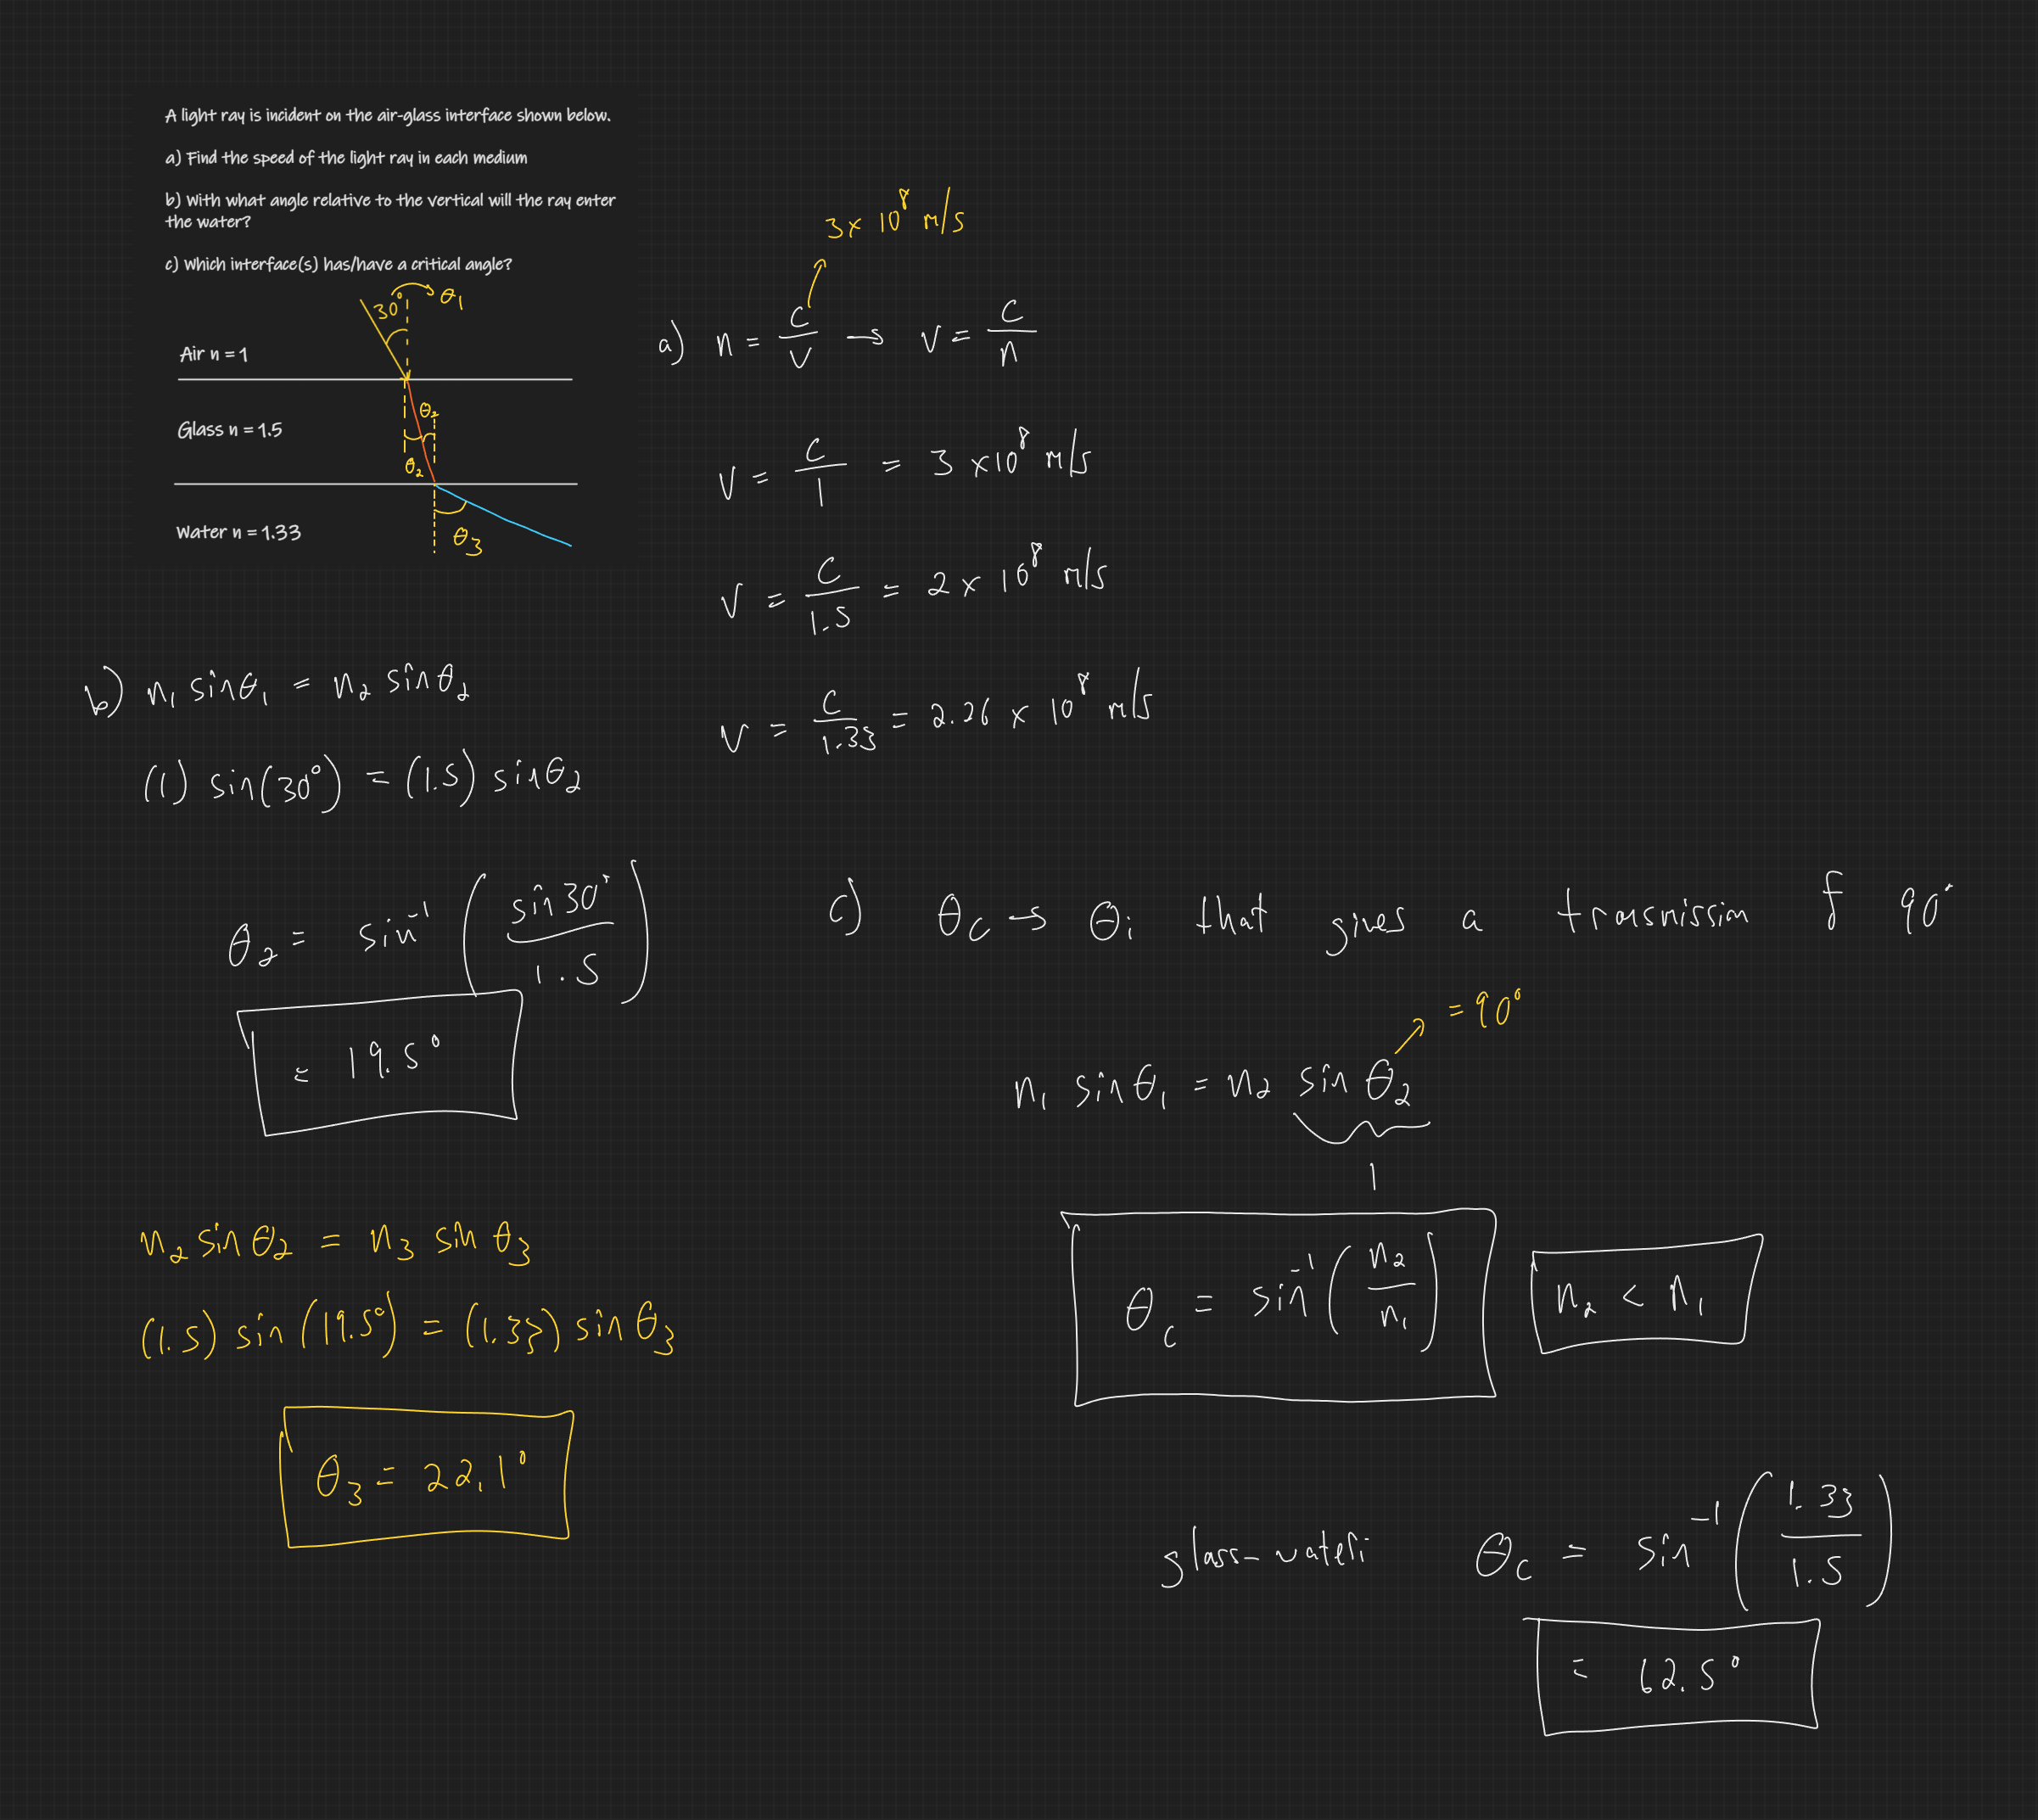 A light ray is incident on the air-glass interface shown below.
a) Find the speed of the light ray in each medium
b) With what angle relative to the vertical will the ray enter
the water?
c) Which interface(s) has/have a critical angle?
30° θ₁
Air n = 1
θ₂
Glass n = 1.5
θ₂
Water n = 1.33
θ₃
3 × 10⁸ m/s
a) n = c/v → v = c/n
v = c/1 = 3 × 10⁸ m/s
v = c/1.5 = 2 × 10⁸ m/s
v = c/1.33 = 2.26 × 10⁸ m/s
b) n₁ sinθ₁ = n₂ sinθ₂
(1) sin(30°) = (1.5) sinθ₂
θ₂ = sin⁻¹ (sin 30° / 1.5)
= 19.5°
n₂ sin θ₂ = n₃ sin θ₃
(1.5) sin (19.5°) = (1.33) sin θ₃
θ₃ = 22.1°
c) θc → θi that gives a transmission of 90°
= 90°
n₁ sinθ₁ = n₂ sin θ₂
1
θc = sin⁻¹ (n₂/n₁)
n₂ < n₁
glass-water: θc = sin⁻¹ (1.33/1.5)
= 62.5°